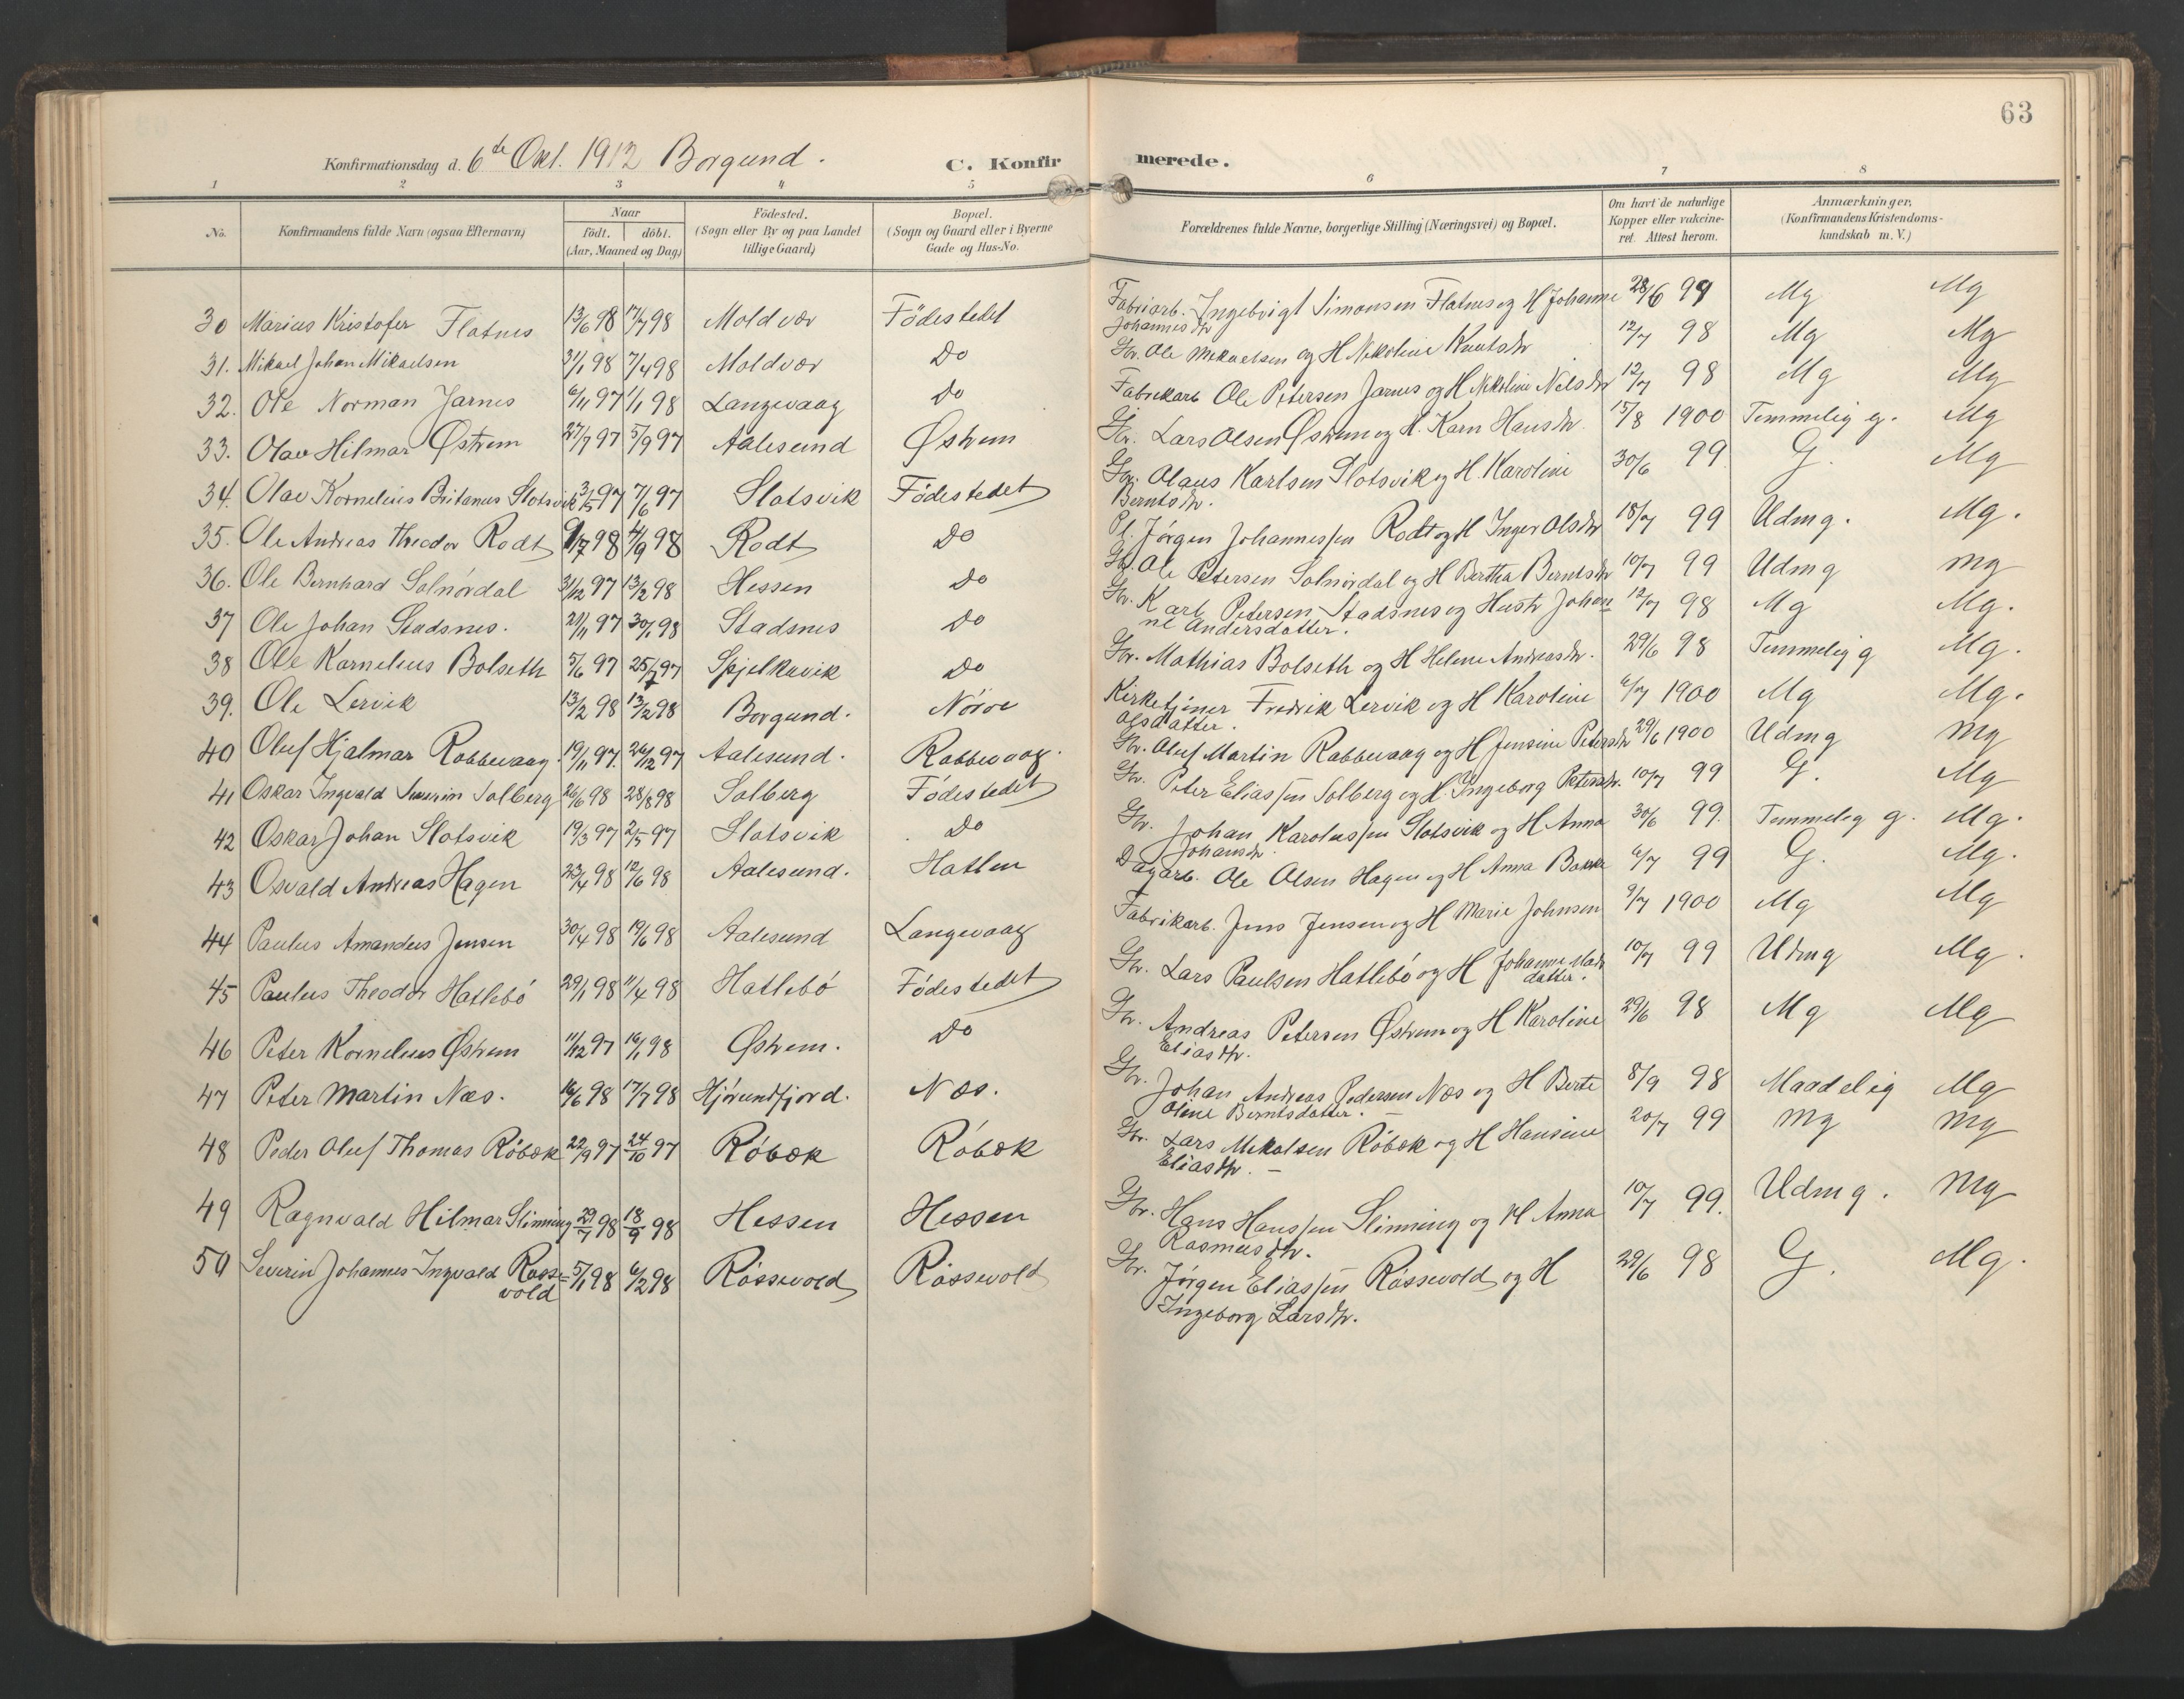 63
Konfirmationsdag d. 6te Okt. 1912 Borgund. C. Konfirmerede.
1 2 3 4 5 6 7 8
No. Konfirmandens fulde Navn (ogsaa Efternavn) Naar født. døbt. (Aar, Maaned og Dag) Fødested. (Sogn eller By og paa Landet tillige Gaard) Bopæl. (Sogn og Gaard eller i Byerne Gade og Hus-No. Forældrenes fulde Navne, borgerlige Stilling (Næringsvei) og Bopæl. Om havt de naturlige Kopper eller vakcineret. Attest herom. Anmærkninger. (Konfirmandens Kristendomskundskab m. V.)
30 Marius Kristofer Flatnes 13/6 98 17/7 98 Moldvær Födestedet Fabriarb. Ingebrigt Simonsen Flatnes og H Johanne Johannesdtr 28/6 99 Mg Mg
31. Mikael Johan Mikaelsen 31/1 98 7/4 98 Moldvær Do Gbr. Ole Mikaelsen og H Nikoline Knutsdtr 12/7 98 Mg Mg
32. Ole Norman Jarnes 6/11 97 1/1 98 Langevaag Do Fabrikarb Ole Petersen Jarnes og H Nikoline Nilsdtr 12/7 98 Mg Mg
33. Olav Hilmar Østrem 27/7 97 5/9 97 Aalesund Østrem Gbr. Lars Olsen Østrem og H. Karn Hansdtr. 15/8 1900 Temmelig g. Mg
34. Olav Kornelius Britanus Slotsvik 3/5 97 7/6 97 Slotsvik Födestedet Gbr. Olaus Karlsen Slotsvik og H. Karoline Berntsdtr. 30/6 99 G. Mg
35. Ole Andreas Theodor Rodt 9/7 98 4/9 98 Rodt Do Pl. Jørgen Johannessen Rodt og H Inger Olsdtr 18/7 99 Udmg. Mg.
36. Ole Bernhard Solnördal 31/12 97 13/2 98 Hessen Do Gbr. Ole Petersen Solnördal og H Bertha Berntsdtr 10/7 99 Udmg Mg
37 Ole Johan Stadsnes. 21/11 97 30/1 98 Stadsnes Do Gbr. Karl Petersen Stadsnes og Hustr Johanne Andersdatter. 12/7 98 Mg Mg.
38 Ole Kornelius Bolseth 5/6 97 25/7 97 Spjelkavik Do Gbr. Mathias Bolseth og H Helene Andreasdtr. 29/6 98 Temmelig g Mg.
39. Ole Lervik 13/2 98 13/2 98 Borgund. Nörve Kirketjener Fredrik Lervik og H Karoline Olsdatter. 6/7 1900 Mg Mg.
40 Oluf Hjalmar Rabbevaag. 19/11 97. 26/12 97 Aalesund. Rabbevaag. Gbr. Oluf Martin Rabbevaag og H Jensine Petersdtr 29/6 1900 Udmg Mg
41 Oskar Ingvald Severin Solberg 26/6 98 28/8 98 Solberg Födestedet Gbr. Peter Eliassen Solberg og H. Ingeborg Petersdtr. 10/7 99 G. Mg
42 Oskar Johan Slotsvik 19/3 97 2/5 97 Slotsvik Do Gbr. Johan Karolussen Slotsvik og H Anna Johansdtr. 30/6 99. Temmelig g. Mg.
43 Osvald Andreas Hagen 23/4 98 12/6 98 Aalesund. Hatlen Dagarb. Ole Olsen Hagen og H Anna Bakke 6/7 99 G. Mg.
44 Paulus Amandus Jensen 30/4 98 19/6 98 Aalesund Langevaag Fabrikarb. Jens Jensen og H Marie Johnsen 9/7 1900 Mg Mg
45 Paulus Theodor Hatlebö 29/1 98 11/4 98 Hatlebö Födestedet Gbr. Lars Paulsen Hatlebö og H Johanne datter. 10/7 99 Udmg Mg.
46 Peter Kornelius Østrem 11/12 97 16/1 98 Østrem. Do Gbr. Andreas Petersen Østrem og H Karoline Eliasdtr. 29/6 98 Mg Mg
47 Peter Martin Næs. 16/6 98 17/7 98 Hjörundfjord. Næs. Gbr. Johan Andreas Pedersen Næs og H Berte Oline Berntsdatter. 8/9 98 Maadelig Mg
48 Peder Oluf Thomas Röbæk 22/9 97 24/10 97 Röbæk Röbæk Gbr. Lars Mikalsen Röbæk og H Hansine Eliasdtr. 20/7 99 Mg Mg
49 Ragnvald Hilmar Slinning 29/7 98 18/9 98 Hessen Hessen Gbr. Hans Hanssen Slinning og H Anna Rasmusdtr. 10/7 99. Udmg. Mg
50 Severin Johannes Ingvald Rössevold 5/1 98 6/2 98 Rössevold Rössevold Gbr. Jørgen Eliassen Rössevold og H Ingeborg Larsdtr. 29/6 98 G. Mg.